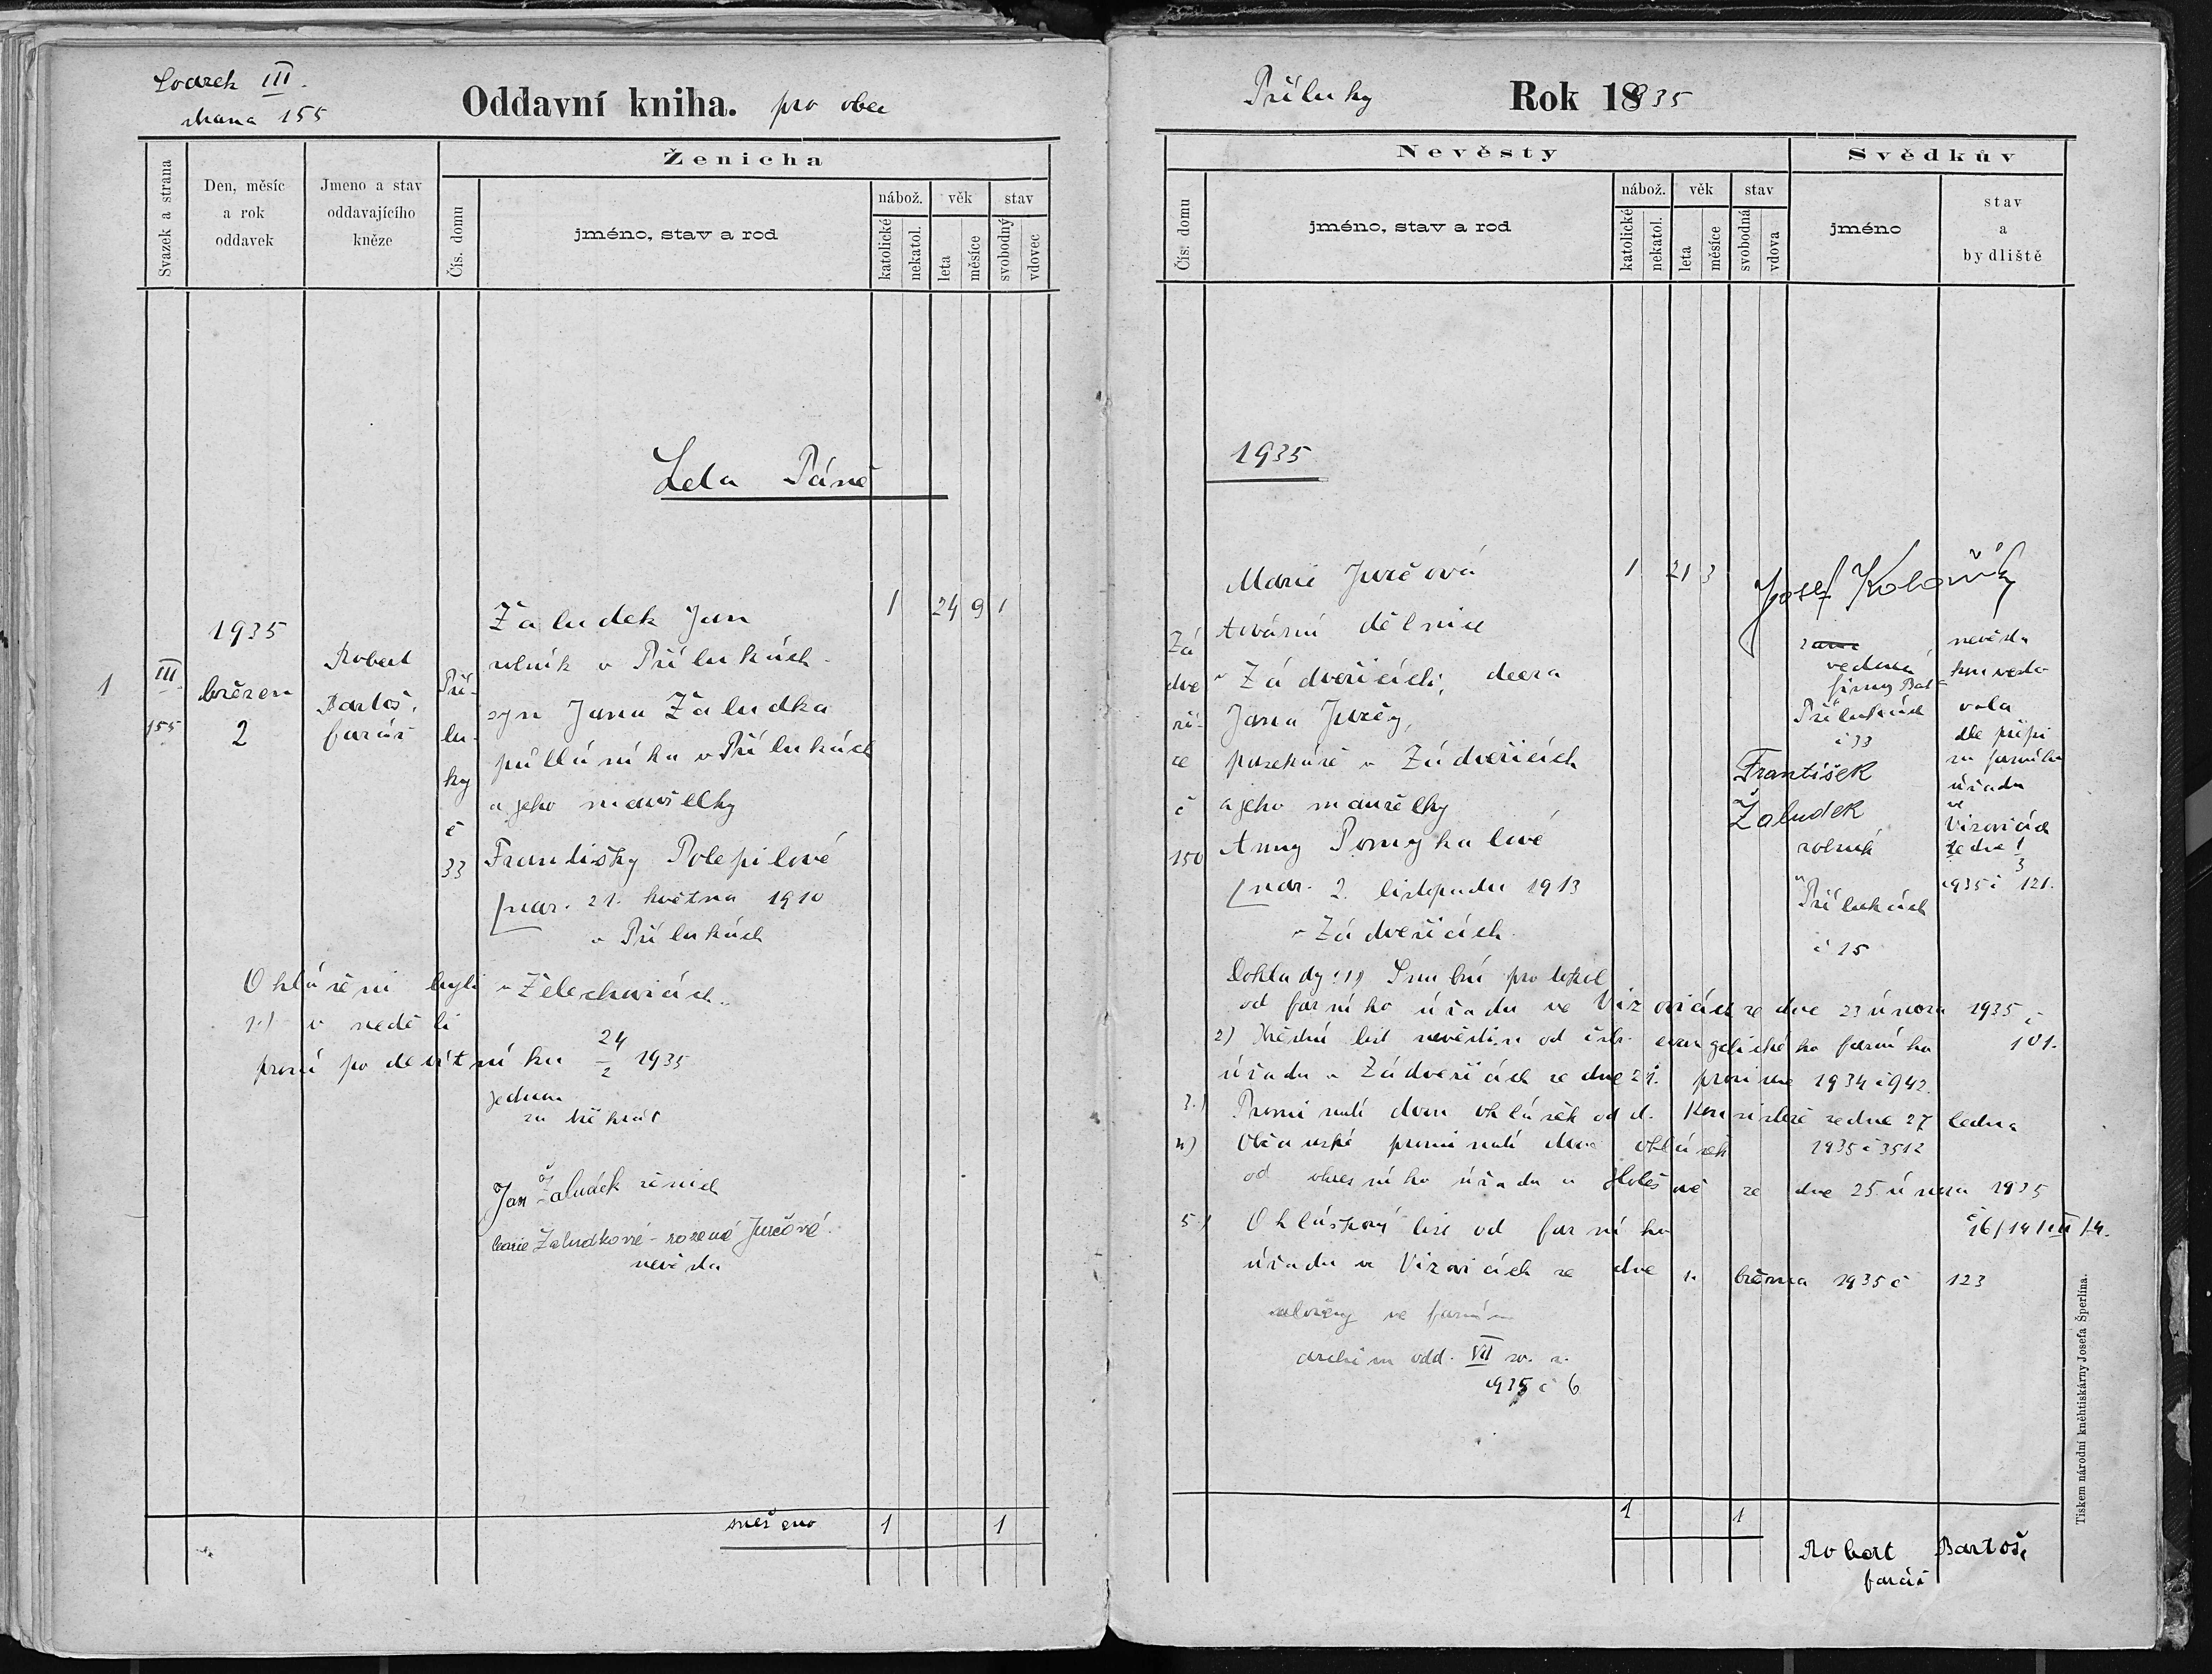 Svazek III.
strana 155
Oddavní kniha. pro obec
Svazek a strana
Den, měsíc
a rok
oddavek
Jmeno a stav
oddavajícího
kněze
Ženicha
Čís. domu
jméno, stav a rod
nábož.
katolické
nekatol.
věk
leta
měsíce
stav
svobodný
vdovec
Leta Páně
1
III
155
1935
březen
2
Robert
Bartoš,
farář
Pří-
lu-
ky
č
33
Žaludek Jan
rolník v Přílukách
syn Jana Žaludka
půlláníka v Přílukách
a jeho manželky
Františky Polepilové
nar. 21. května 1910
v Přílukách
1 24 9 1
Ohlášeni byli v Želechovicích.
1.) v neděli
první po devítníku 24/2 1935
jednou
za třikrát
Jan Žaludek ženich
Marie Žaludkové - rozené Jurčové.
nevěsta
sneseno 1 1
Příluky
Rok 18935
Nevěsty
Čís. domu
jméno, stav a rod
nábož.
katolické
nekatol.
věk
leta
měsíce
stav
svobodná
vdova
Svědkův
jméno
stav
a
bydliště
1935
Zá
dve
ři-
ce
č
150
Marie Jurčová
tovární dělnice
v Zádveřicích, dcera
Jana Jurčy,
pasekáře v Zádveřicích
a jeho manželky
Anny Pomykalové
nar. 2. listopadu 1913
v Zádveřicích
1 21 3
Josef Kolařík
vedoucí
firmy Baťa
Přílukách
č 33
František
Žaludek
rolník
v
Přílukách
č 15
nevěsta
konverto
vala
dle přípi
su farního
úřadu
ve
Vizovicích
ze dne 1
3
1935 č 121.
Doklady: 1) Snubní protokol
od farního úřadu ve Vizovicích ze dne 23 února 1935 č
101.
2) Křestní list nevěstin od čsbr. evangelického farního
úřadu v Zádveřicích ze dne 21. prosince 1934 č 942
3.) Prominutí dvou ohlášek od d. Konsistoře ze dne 27 ledna
1935 č 3512
4) Občanské prominutí dvou ohlášek
od okresního úřadu v Holešově ze dne 25. února 1935
č 6/14/III/4.
5.) Ohláškový list od farního
úřadu ve Vizovicích ze dne 1. března 1935 č 123
uloženy ve farním
archivu odd. VII
1935 č 6
1 1
Robert Bartoš,
farář
Tiskem národní kněhtiskárny Josefa Šperlína.